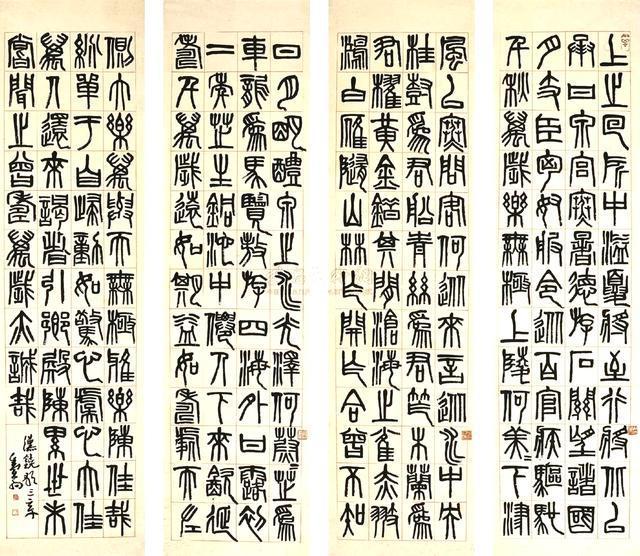 上之回所中溢夏將至行將北以
承甘泉宮寒暑德游石關望諸國
月支臣匈奴服令從百官疾驅馳
千秋萬歲樂無極上陵何美=下津
風以寒問客何從來言從水中央
桂樹為君船青絲為君笮木蘭為
君櫂黃金錯其間滄海之雀赤翅
鴻白雁隨山林乍開乍合曾不知
日月明醴泉之水光澤何蔚芝為
車龍為馬覽敖游四海外甘露初
二年芝生銅池中僊人下來飲延
壽千萬歲遠如期益如壽處天左
側大樂萬與天無極雅樂陳佳哉
紛單于自歸動如驚心虞心大佳
萬人還來謁者引鄉殿陳累世未
嘗聞之曾壽萬歲亦誠哉
漢鐃歌三章